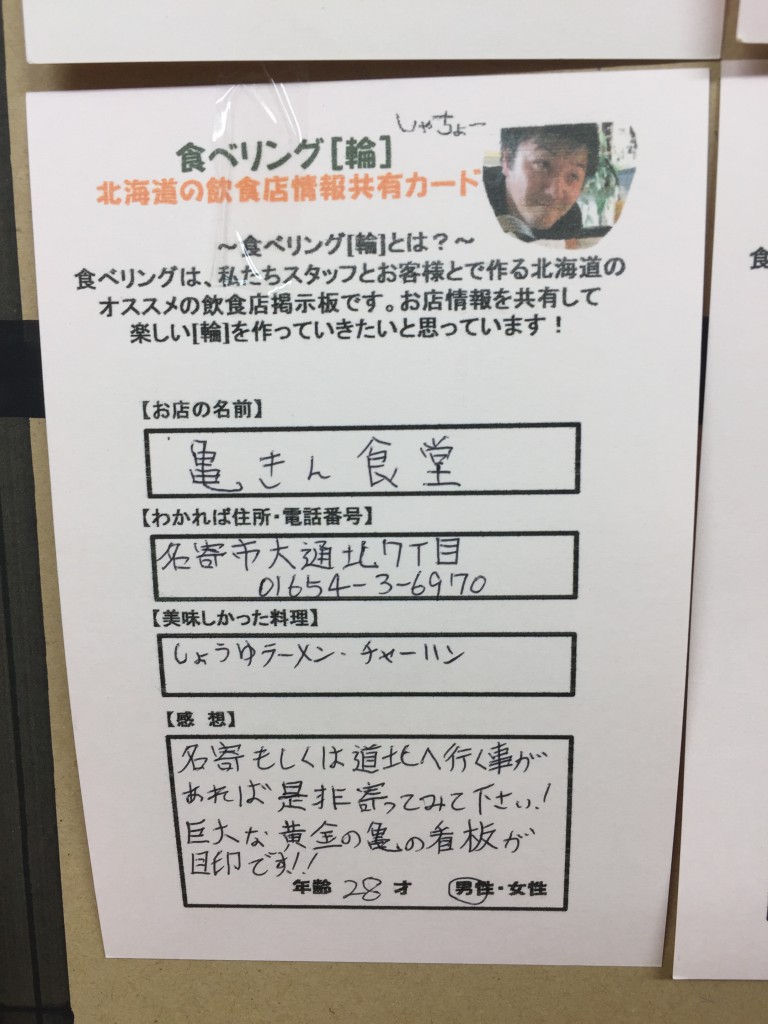 しゃちょー
食べリング[輪]
北海道の飲食店情報共有カード
～食べリング[輪]とは？～
食べリングは、私たちスタッフとお客様とで作る北海道の
オススメの飲食店掲示板です。お店情報を共有して
楽しい[輪]を作っていきたいと思っています！
【お店の名前】
亀きん食堂
【わかれば住所・電話番号】
名寄市大通北7丁目
01654-3-6970
【美味しかった料理】
しょうゆラーメン・チャーハン
【感 想】
名寄もしくは道北へ行く事が
あれば是非寄ってみて下さい!
巨大な黄金の亀の看板が
目印です!!
年齢 28 才 男性・女性
食